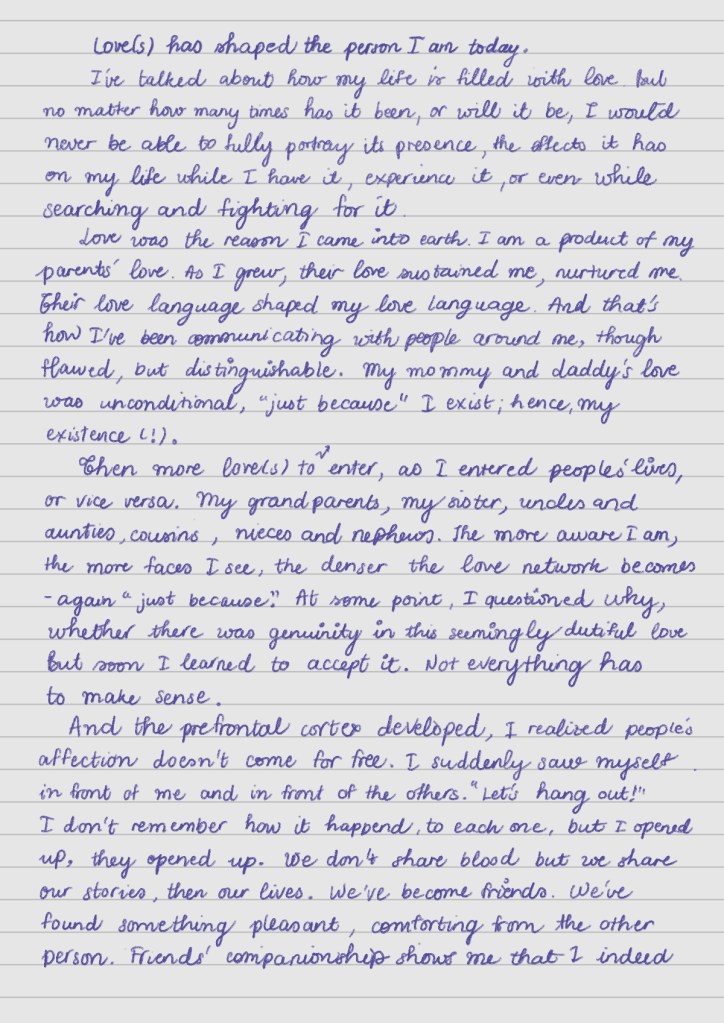 Love(s) has shaped the person I am today.
I've talked about how my life is filled with love but
no matter how many times has it been, or will it be, I would
never be able to fully portray its presence, the effects it has
on my life while I have it, experience it, or even while
searching and fighting for it.
Love was the reason I came into earth. I am a product of my
parents' love. As I grew, their love sustained me, nurtured me.
Their love language shaped my love language. And that's
how I've been communicating with people around me, though
flawed, but distinguishable. My mommy and daddy's love
was unconditional, "just because" I exist; hence, my
existence (!).
Then more love(s) to enter, as I entered peoples' lives,
or vice versa. My grandparents, my sister, uncles and
aunties, cousins, nieces and nephews. The more aware I am,
the more faces I see, the denser the love network becomes
- again "just because". At some point, I questioned why,
whether there was genuinity in this seemingly dutiful love
but soon I learned to accept it. Not everything has
to make sense.
And the prefrontal cortex developed, I realized people's
affection doesn't come for free. I suddenly saw myself
in front of me and in front of the others. "Let's hang out!"
I don't remember how it happend, to each one, but I opened
up, they opened up. We don't share blood but we share
our stories, then our lives. We've become friends. We've
found something pleasant, comforting from the other
person. Friends' companionship shows me that I indeed